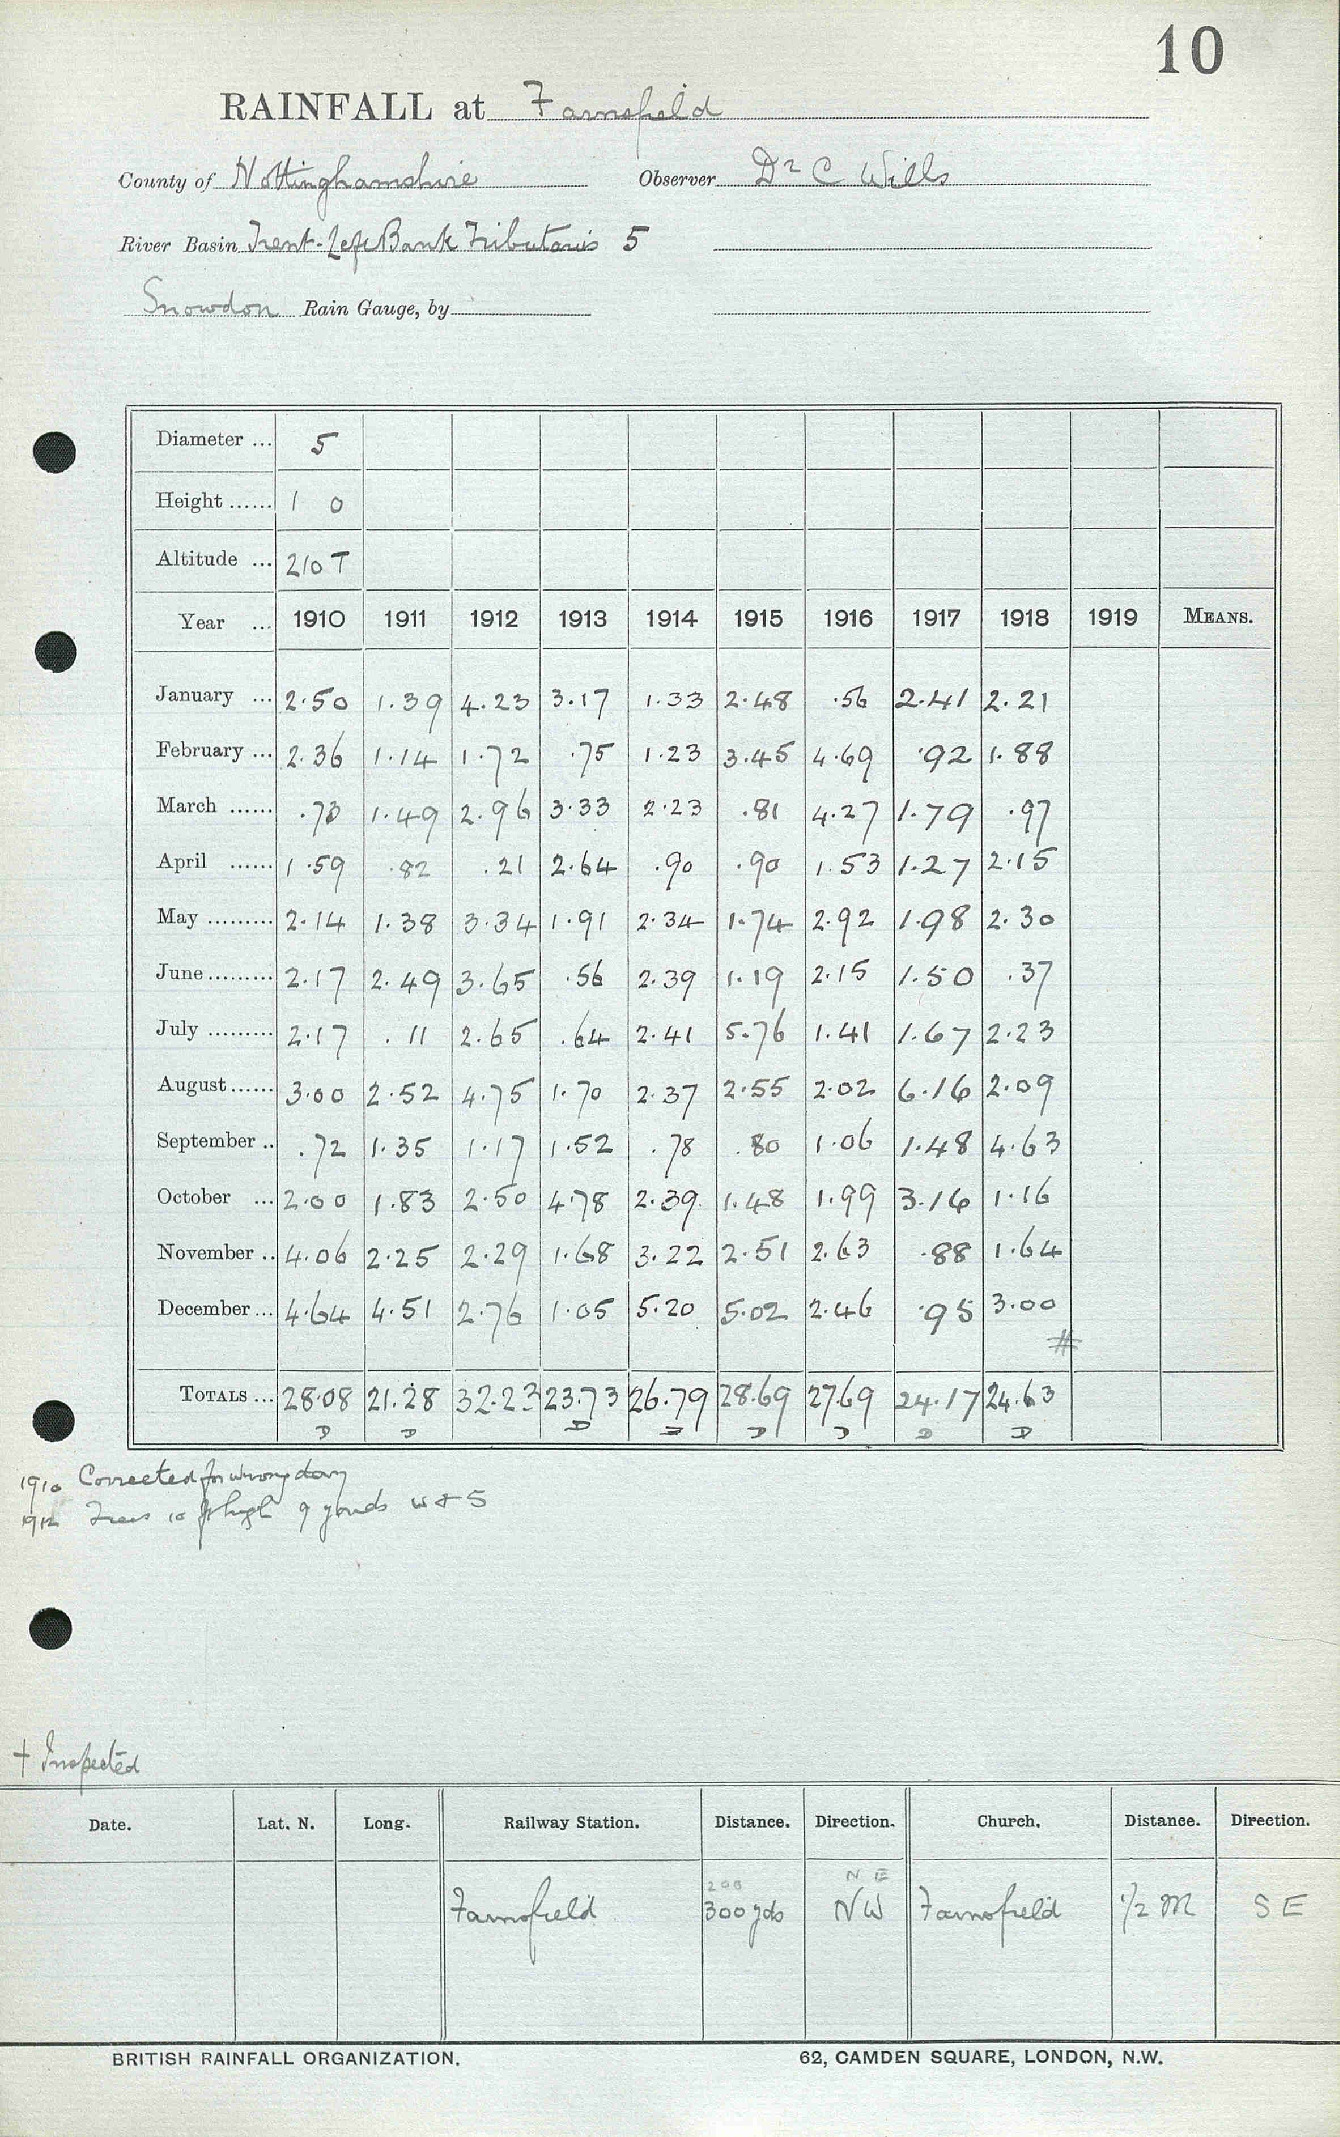 10
RAINFALL at Farnsfield
County of Nottinghamshire Observer Dr C Wills
River Basin Trent-Left Bank Tributaries 5
Snowdon Rain Gauge, by
Diameter ... 5
Height ...... 1 0
Altitude ... 210 T
Year ... 1910 1911 1912 1913 1914 1915 1916 1917 1918 1919 MEANS.
January ... 2.50 1.39 4.23 3.17 1.33 2.48 .56 2.41 2.21
February ... 2.36 1.14 1.72 .75 1.23 3.45 4.69 .92 1.88
March ...... .73 1.49 2.96 3.33 2.23 .81 4.27 1.79 .97
April ...... 1.59 .82 .21 2.64 .90 .90 1.53 1.27 2.15
May ......... 2.14 1.38 3.34 1.91 2.34 1.74 2.92 1.98 2.30
June ......... 2.17 2.49 3.65 .56 2.39 1.19 2.15 1.50 .37
July ......... 2.17 .11 2.65 .64 2.41 5.76 1.41 1.67 2.23
August ...... 3.00 2.52 4.75 1.70 2.37 2.55 2.02 6.16 2.09
September .. .72 1.35 1.17 1.52 .78 .80 1.06 1.48 4.63
October ... 2.00 1.83 2.50 4.78 2.39 1.48 1.99 3.16 1.16
November .. 4.06 2.25 2.29 1.68 3.22 2.51 2.63 .88 1.64
December ... 4.64 4.51 2.76 1.05 5.20 5.02 2.46 .95 3.00
#
TOTALS ... 28.08 21.28 32.23 23.73 26.79 28.69 27.69 24.17 24.63
D D D D D D D D
1910 Corrected for wrong day
1912 Trees 10 ft high 9 yards W & S
+ Inspected
Date. Lat. N. Long. Railway Station. Distance. Direction. Church. Distance. Direction.
200 N E
Farnsfield 300 yds NW Farnsfield 1/2 M S E
BRITISH RAINFALL ORGANIZATION. 62, CAMDEN SQUARE, LONDON, N.W.